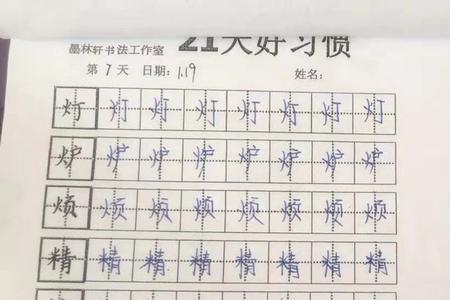 墨林轩书法工作室 21天好习惯
第7天 日期: 1.19 姓名:
灯 灯 灯 灯 灯 灯 灯 灯
炉 炉 炉 炉 炉 炉 炉 炉
烦 烦 烦 烦 烦 烦 烦 烦
精 精 精 精 精 精 精 精